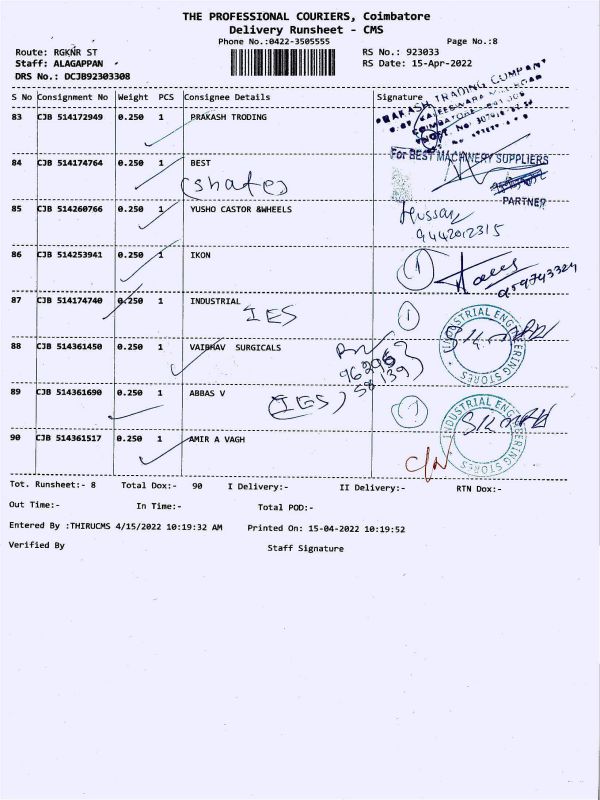 THE PROFESSIONAL COURIERS, Coimbatore
Delivery Runsheet - CMS
Phone No.:0422-3505555 Page No.:8
Route: RGKNR ST RS No.: 923033
Staff: ALAGAPPAN RS Date: 15-Apr-2022
DRS No.: DCJB92303308
S No Consignment No Weight PCS Consignee Details Signature
83 CJB 514172949 0.250 1 PRAKASH TRODING
PRAKASH TRADING COMPANY
84 CJB 514174764 0.250 1 BEST
For BEST MACHINERY SUPPLIERS
PARTNER
85 CJB 514260766 0.250 1 YUSHO CASTOR &WHEELS
Hussan
9442012315
86 CJB 514253941 0.250 1 IKON
1
87 CJB 514174740 0.250 1 INDUSTRIAL
IES
1
INDUSTRIAL ENGINEERING STORES
88 CJB 514361450 0.250 1 VAIBHAV SURGICALS
89 CJB 514361690 0.250 1 ABBAS V
(IES)
1
INDUSTRIAL ENGINEERING STORES
90 CJB 514361517 0.250 1 AMIR A VAGH
Tot. Runsheet:- 8 Total Dox:- 90 I Delivery:- II Delivery:- RTN Dox:-
Out Time:- In Time:- Total POD:-
Entered By :THIRUCMS 4/15/2022 10:19:32 AM Printed On: 15-04-2022 10:19:52
Verified By Staff Signature